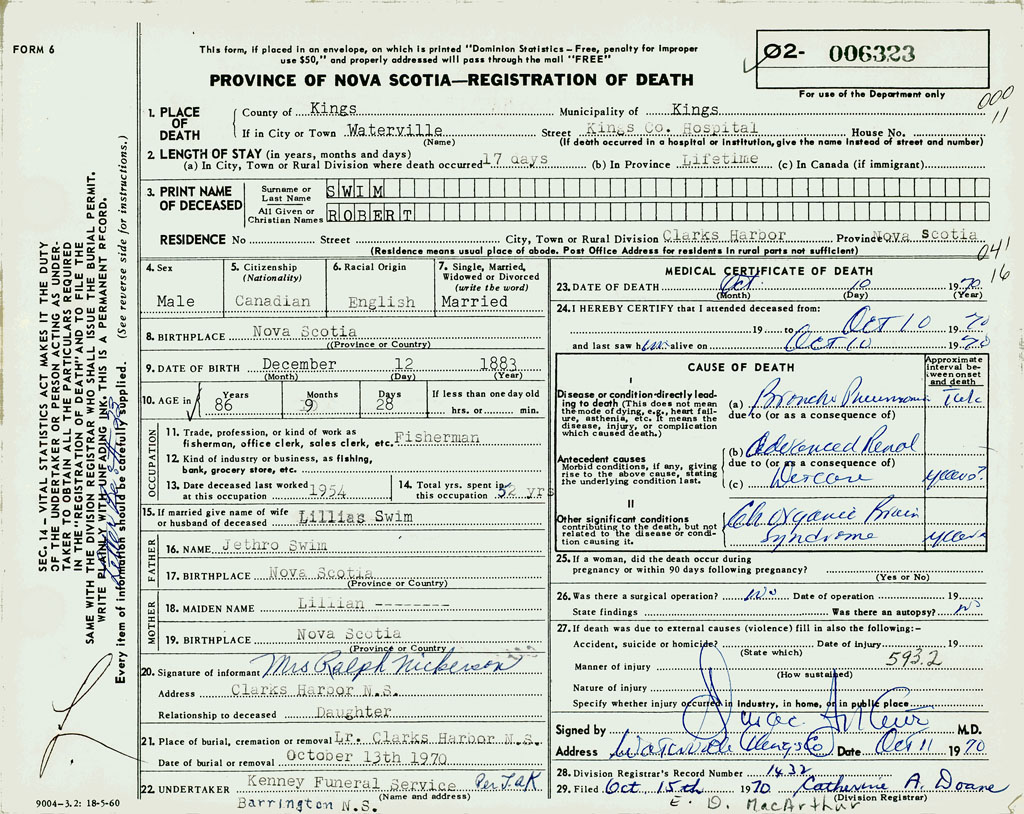 FORM 6
This form, if placed in an envelope, on which is printed "Dominion Statistics – Free, penalty for improper
use $50," and properly addressed will pass through the mail "FREE"
PROVINCE OF NOVA SCOTIA—REGISTRATION OF DEATH
02- 006323
For use of the Department only
000
11
1. PLACE OF DEATH
County of Kings Municipality of Kings
If in City or Town Waterville Street Kings Co. Hospital House No.
(Name) (If death occurred in a hospital or institution, give the name instead of street and number)
2. LENGTH OF STAY (in years, months and days)
(a) In City, Town or Rural Division where death occurred 17 days (b) In Province Lifetime (c) In Canada (if immigrant)
3. PRINT NAME OF DECEASED
Surname or Last Name SWIM
All Given or Christian Names ROBERT
RESIDENCE No. Street City, Town or Rural Division Clarks Harbor Province Nova Scotia
(Residence means usual place of abode. Post Office Address for residents in rural parts not sufficient)
041
16
4. Sex
Male
5. Citizenship
(Nationality)
Canadian
6. Racial Origin
English
7. Single, Married,
Widowed or Divorced
(write the word)
Married
8. BIRTHPLACE Nova Scotia
(Province or Country)
9. DATE OF BIRTH December 12 1883
(Month) (Day) (Year)
10. AGE in Years Months Days If less than one day old
86 9 28 hrs. or min.
OCCUPATION
11. Trade, profession, or kind of work as
fisherman, office clerk, sales clerk, etc. Fisherman
12. Kind of industry or business, as fishing,
bank, grocery store, etc.
13. Date deceased last worked
at this occupation 1954
14. Total yrs. spent in
this occupation 52 yrs
15. If married give name of wife
or husband of deceased Lillias Swim
FATHER
16. NAME Jethro Swim
17. BIRTHPLACE Nova Scotia
(Province or Country)
MOTHER
18. MAIDEN NAME Lillian --------
19. BIRTHPLACE Nova Scotia
(Province or Country)
20. Signature of informant Mrs Ralph Nickerson
Address Clarks Harbor N.S.
Relationship to deceased Daughter
21. Place of burial, cremation or removal Lr. Clarks Harbor N.S.
Date of burial or removal October 13th 1970
22. UNDERTAKER Kenney Funeral Service Per J.a.K
(Name and address)
Barrington N.S.
MEDICAL CERTIFICATE OF DEATH
23. DATE OF DEATH Oct. 10 1970
(Month) (Day) (Year)
24. I HEREBY CERTIFY that I attended deceased from:
19 to Oct 10 1970
and last saw him alive on Oct 10 1970
CAUSE OF DEATH
Approximate
interval be-
tween onset
and death
I
Disease or condition directly lead-
ing to death (This does not mean
the mode of dying, e.g., heart fail-
ure, asthenia, etc. It means the
disease, injury, or complication
which caused death.)
(a) Broncho Pneumonia
due to (or as a consequence of)
Antecedent causes
Morbid conditions, if any, giving
rise to the above cause, stating
the underlying condition last.
(b) Advanced Renal
due to (or as a consequence of)
(c) Disease years?
II
Other significant conditions
contributing to the death, but not
related to the disease or condi-
tion causing it.
Ch Organic Brain
Syndrome years
25. If a woman, did the death occur during
pregnancy or within 90 days following pregnancy?
(Yes or No)
26. Was there a surgical operation? No Date of operation 19
State findings Was there an autopsy? No
27. If death was due to external causes (violence) fill in also the following:-
Accident, suicide or homicide? Date of injury 19
(State which)
593.2
Manner of injury
(How sustained)
Nature of injury
Specify whether injury occurred in industry, in home, or in public place
Signed by M.D.
Address Waterville Kings Co Date Oct 11 1970
28. Division Registrar's Record Number 1432
29. Filed Oct 15th 1970 Catherine A. Doane
(Division Registrar)
E. D. MacArthur
9004-3.2: 18-5-60
SEC. 14 – VITAL STATISTICS ACT MAKES IT THE DUTY
OF THE UNDERTAKER OR PERSON ACTING AS UNDER-
TAKER TO OBTAIN ALL THE PARTICULARS REQUIRED
IN THE "REGISTRATION OF DEATH" AND TO FILE THE
SAME WITH THE DIVISION REGISTRAR WHO SHALL ISSUE THE BURIAL PERMIT.
WRITE PLAINLY WITH UNFADING INK. THIS IS A PERMANENT RECORD.
Every item of information should be carefully supplied. (See reverse side for instructions.)